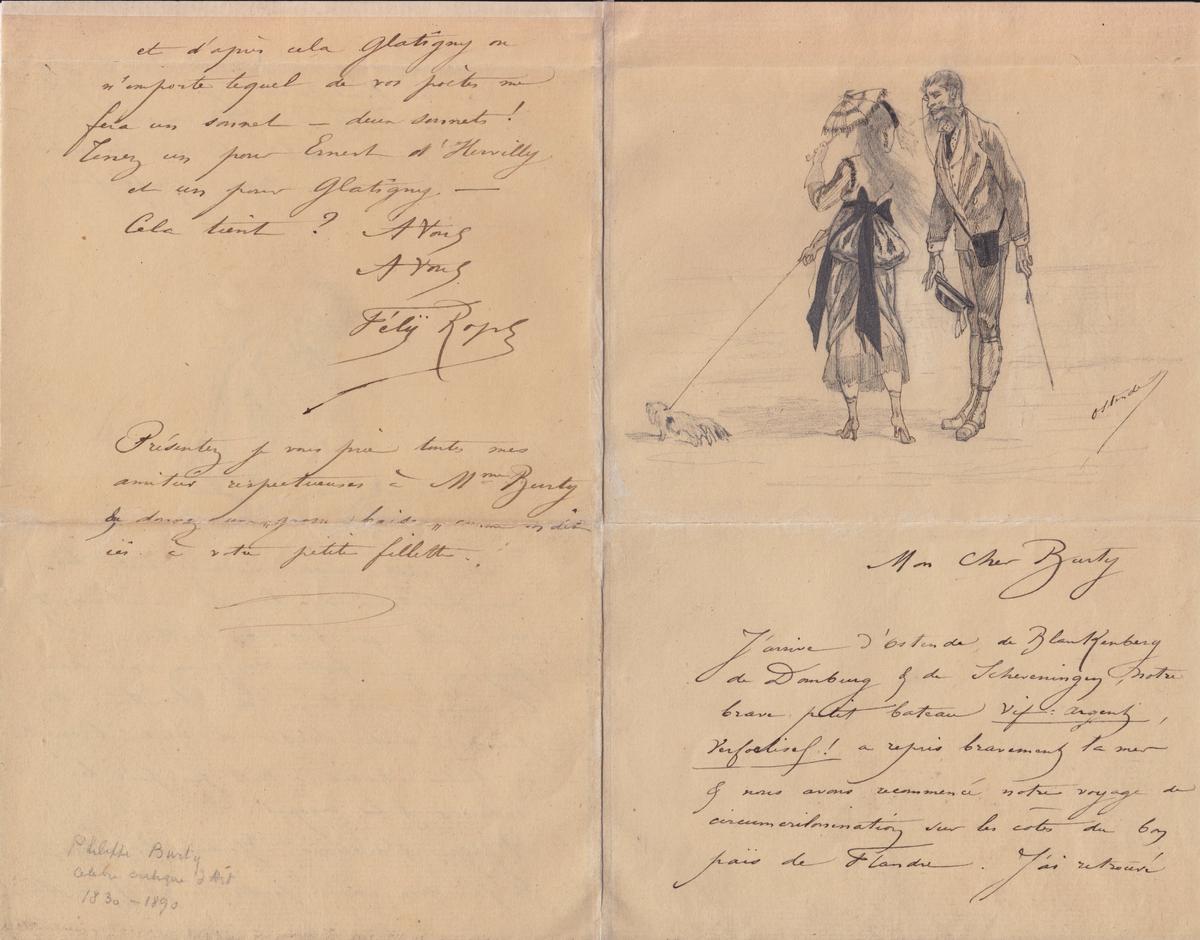 Ostende
Mon cher Burty
J'arrive d'Ostende, de Blankenberg
de Domburg & de Scheveningen, notre
brave petit bateau vif-argent,
a repris bravement la mer
& nous avons recommencé notre voyage de
sur les côtes du bon
païs de Flandre. J'ai retrouvé
et d'après cela Glatigny ou
n'importe lequel de vos poètes me
fera un sonnet – deux sonnets!
Tenez un pour Ernest d'Hervilly
et un pour Glatigny. —
Cela tient? A Vous
A Vous
Félÿ Rops
Présentez je vous prie toutes mes
amitiés respectueuses à Mme Burty
& donnez un „gros baiser„
ici à votre petite fillette.
Philippe Burty
célèbre critique d'Art
1830-1890